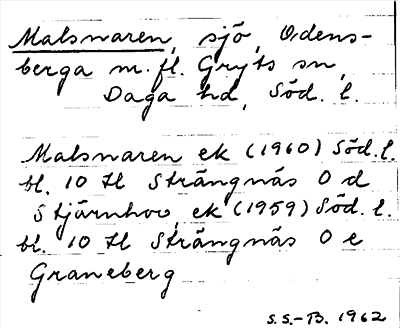 Malsnaren, sjö, Odens-
berga m.fl. Gryts sn,
Daga hd, Söd. l.
Malsnaren ek (1960) Söd. l.
bl. 10 H Strängnäs O d
Stjärnhov, ek (1959) Söd. l.
bl. 10 H Strängnäs O e
Graneberg
S.S.-B. 1962